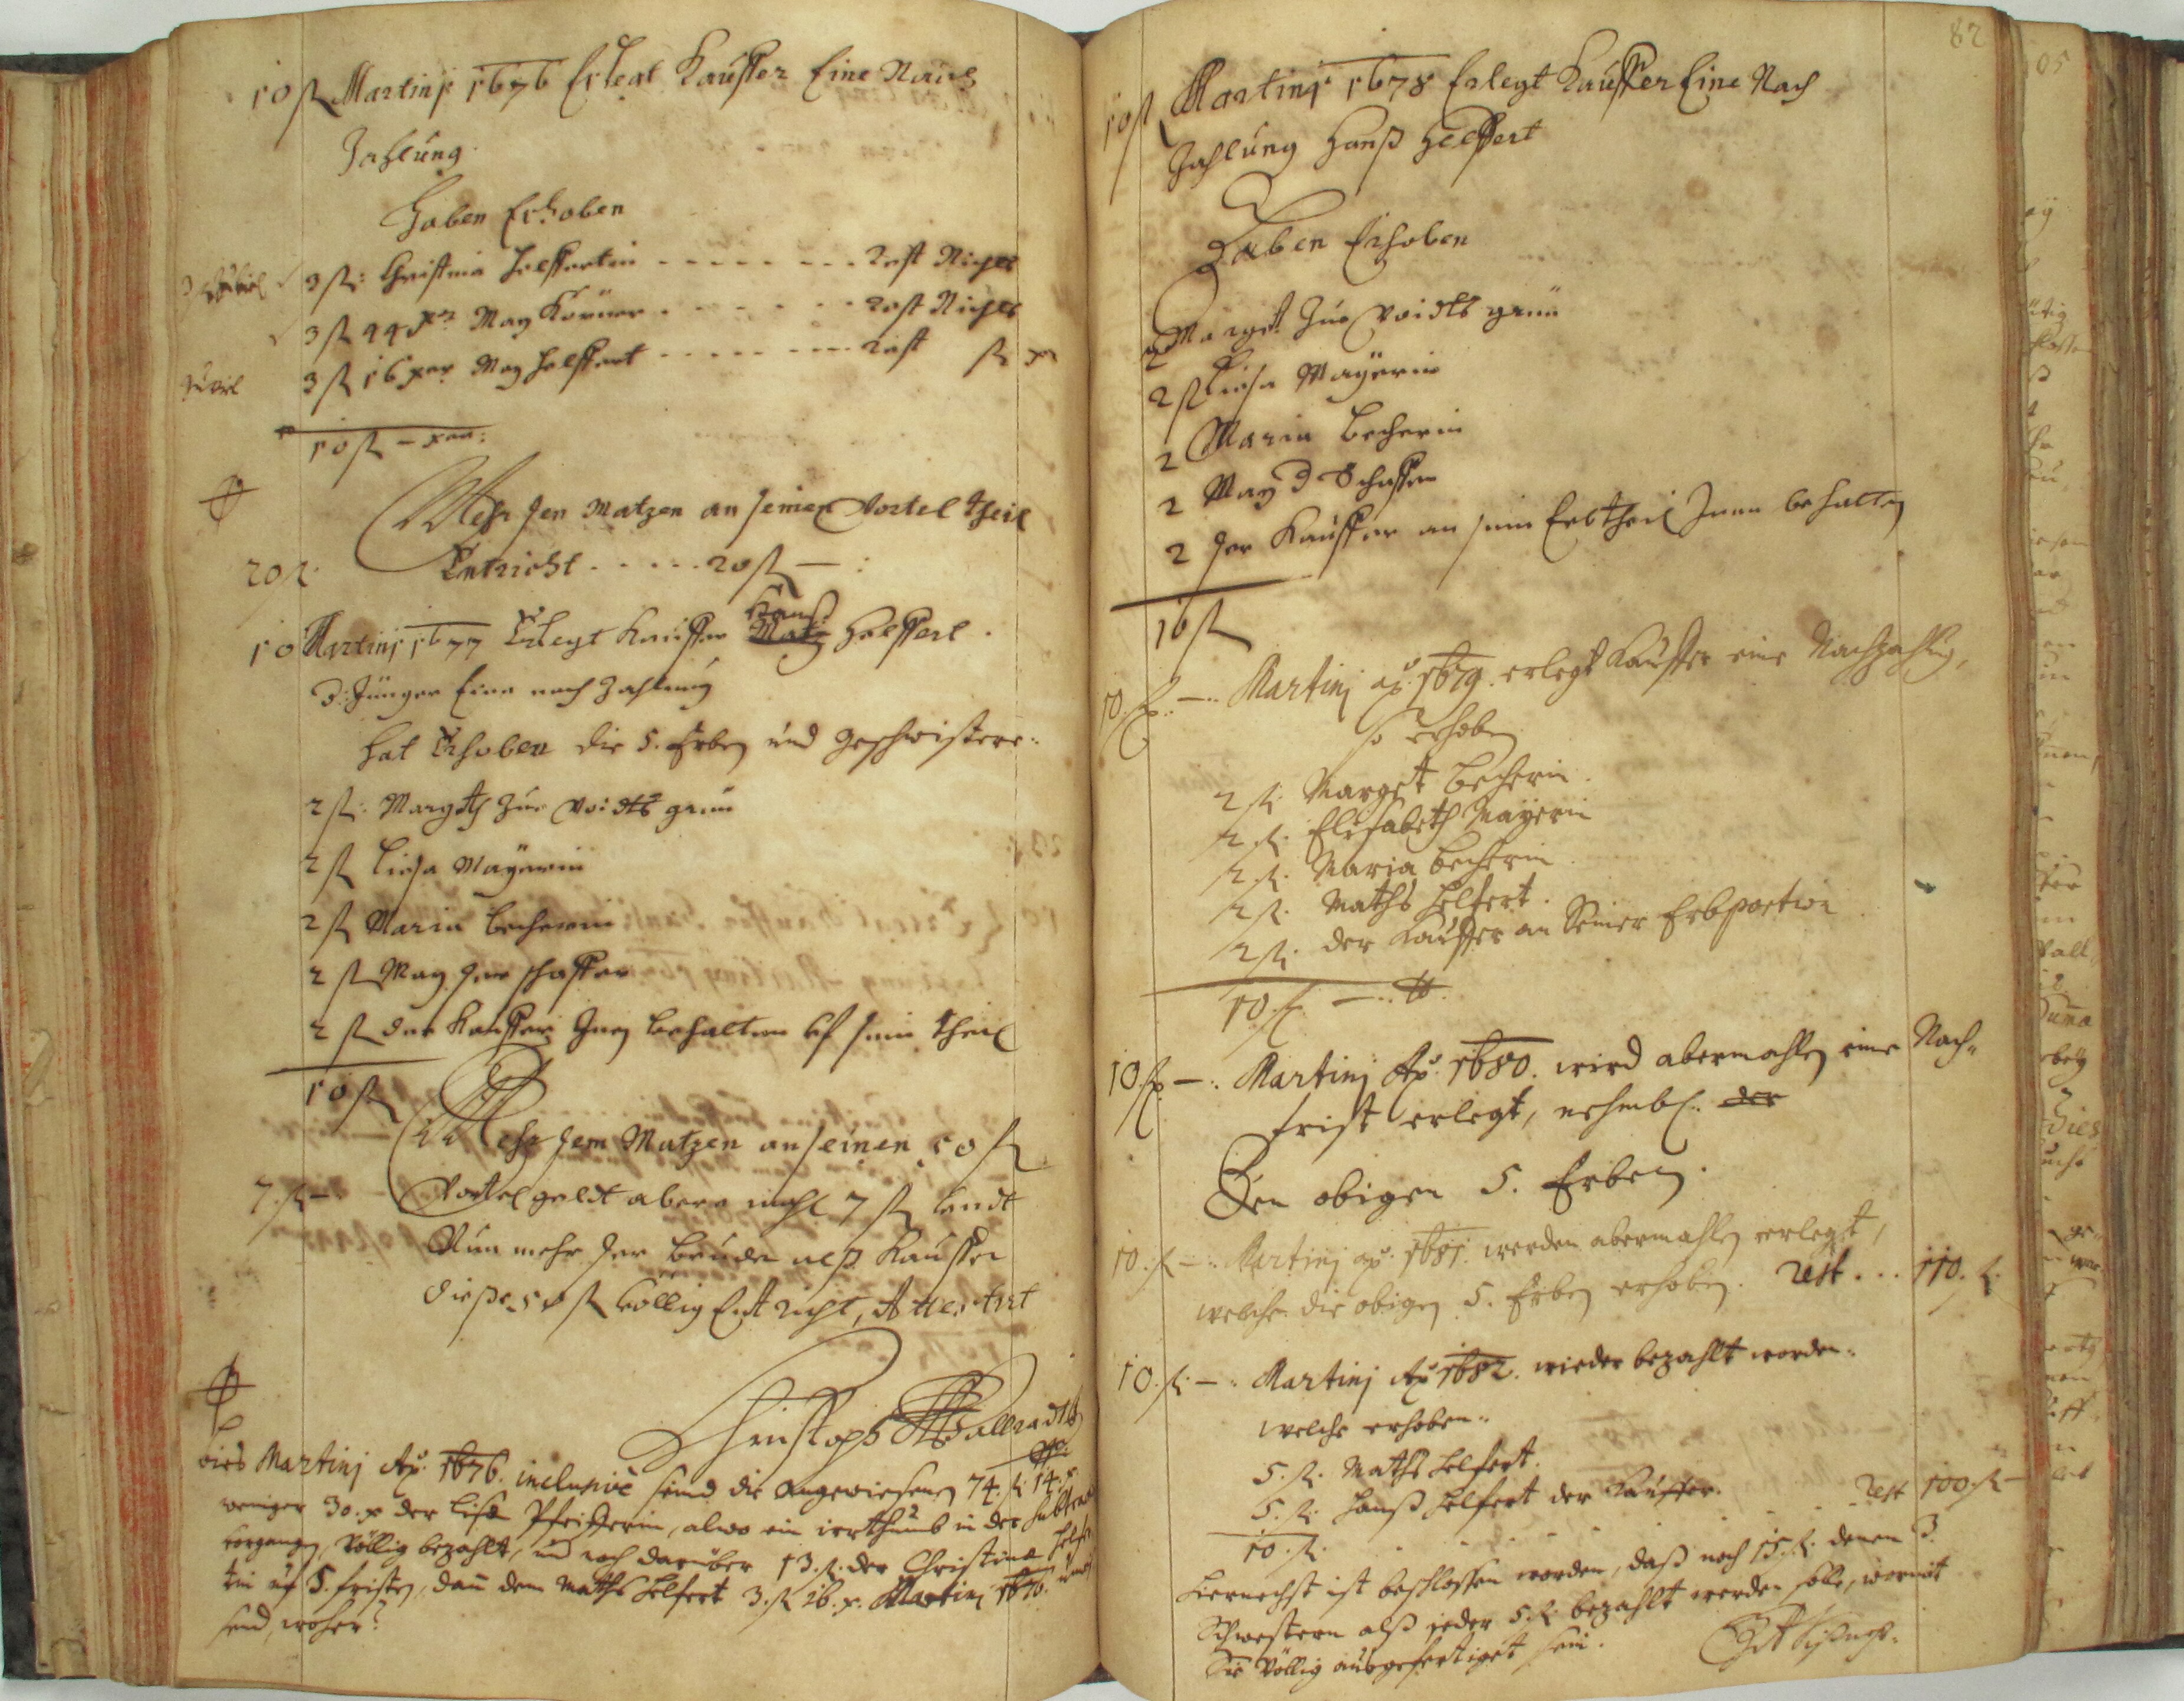 10 fl Martinj 1676 Erlegt Kauffer Eine Nach
Zahlung
Haben Erhoben
3 fl: Christina Helffertin - - - - - - - - Rest Nichts
3 fl 44 xr Max Körner - - - - - - Rest Nichts
zuviel 3 fl 16 xer Max Helffert - - - - - - - - Rest fl xr
10 fl - xer:
Mehr dem Matzen an seinen Vortel theil
20 fl. Entricht . . . . . 20 fl - :
10 Martinj 1677 Erlegt Kauffer Hanß Helffert
d: Jünger Eine nach Zahlung
Hat Erhoben die 5. Erben und Geschwistere:
2 fl: Margeth Zue Voidts grun
2 fl Liesa Mayerin
2 fl Maria Becherin
2 fl Max der schaffer
2 fl der Kauffer Inen behalten uf sein theil
10 fl
Mehr dem Matzen an seinen 50 fl
7. fl - Vortelgeldt abermahl 7 fl
Nun mehr der Bruder alß Kauffer
dieße 50 fl völlig Entricht, Attestirt
Christoph Wallradt
bies Martinj Ao. 1676. inclusivè seind die angewiesenen 74. fl 14. x
weniger 30. x der Lisa Pfeifferin, alwo ein irrthumb in der
vorgangen, völlig bezahlt, und noch darüber 13. fl. der Christina
tin uf 5. fristen, dan dem Maths Helfert 3. fl 16. x. Martinj 1676.
seind, woher?
82
10 fl Martinj 1678 Erlegt Kauffer Eine Nach
Zahlung Hanß Helffert
Haben Erhoben
2 Marget Zue Voidts grün
2 fl Liesa Mayerin
2 Maria Becherin
2 Max d Schaffer
2 der Kauffer an sein Erbtheil Inen behalten
10 fl
10. fl. - : Martinj ao. 1679. erlegt Kauffer eine Nachzahlung,
so erhoben
2 fl. Marget Becherin.
2. fl. Elisabeth Mayerin
2. fl. Maria Becherin.
2 fl. Maths Helfert.
2 fl. der Kauffer an Seiner Erbportion.
10. fl. - :
10. fl. - : Martinj Ao. 1680. wird abermahlen eine Nach-
frist erlegt, nehmbl. der
Den obigen 5. Erben.
10. fl - : Martinj ao. 1681. werden abermahlen erlegt,
welche die obigen 5. Erben erhoben. Rest . . . 110. fl.
10. fl. - : Martinj Ao 1682. wieder bezahlt worden.
welche erhoben.
5. fl. Maths Helfert.
5. fl. Hanß Helfert der Kauffer. Rest 100. fl -
10. fl.
Hiernechst ist beschlossen worden, daß noch 15. fl. denen 3.
Schwestern alß jeder 5. fl. bezahlt werden solle, wormit
Sie völlig ausgefertiget sein.